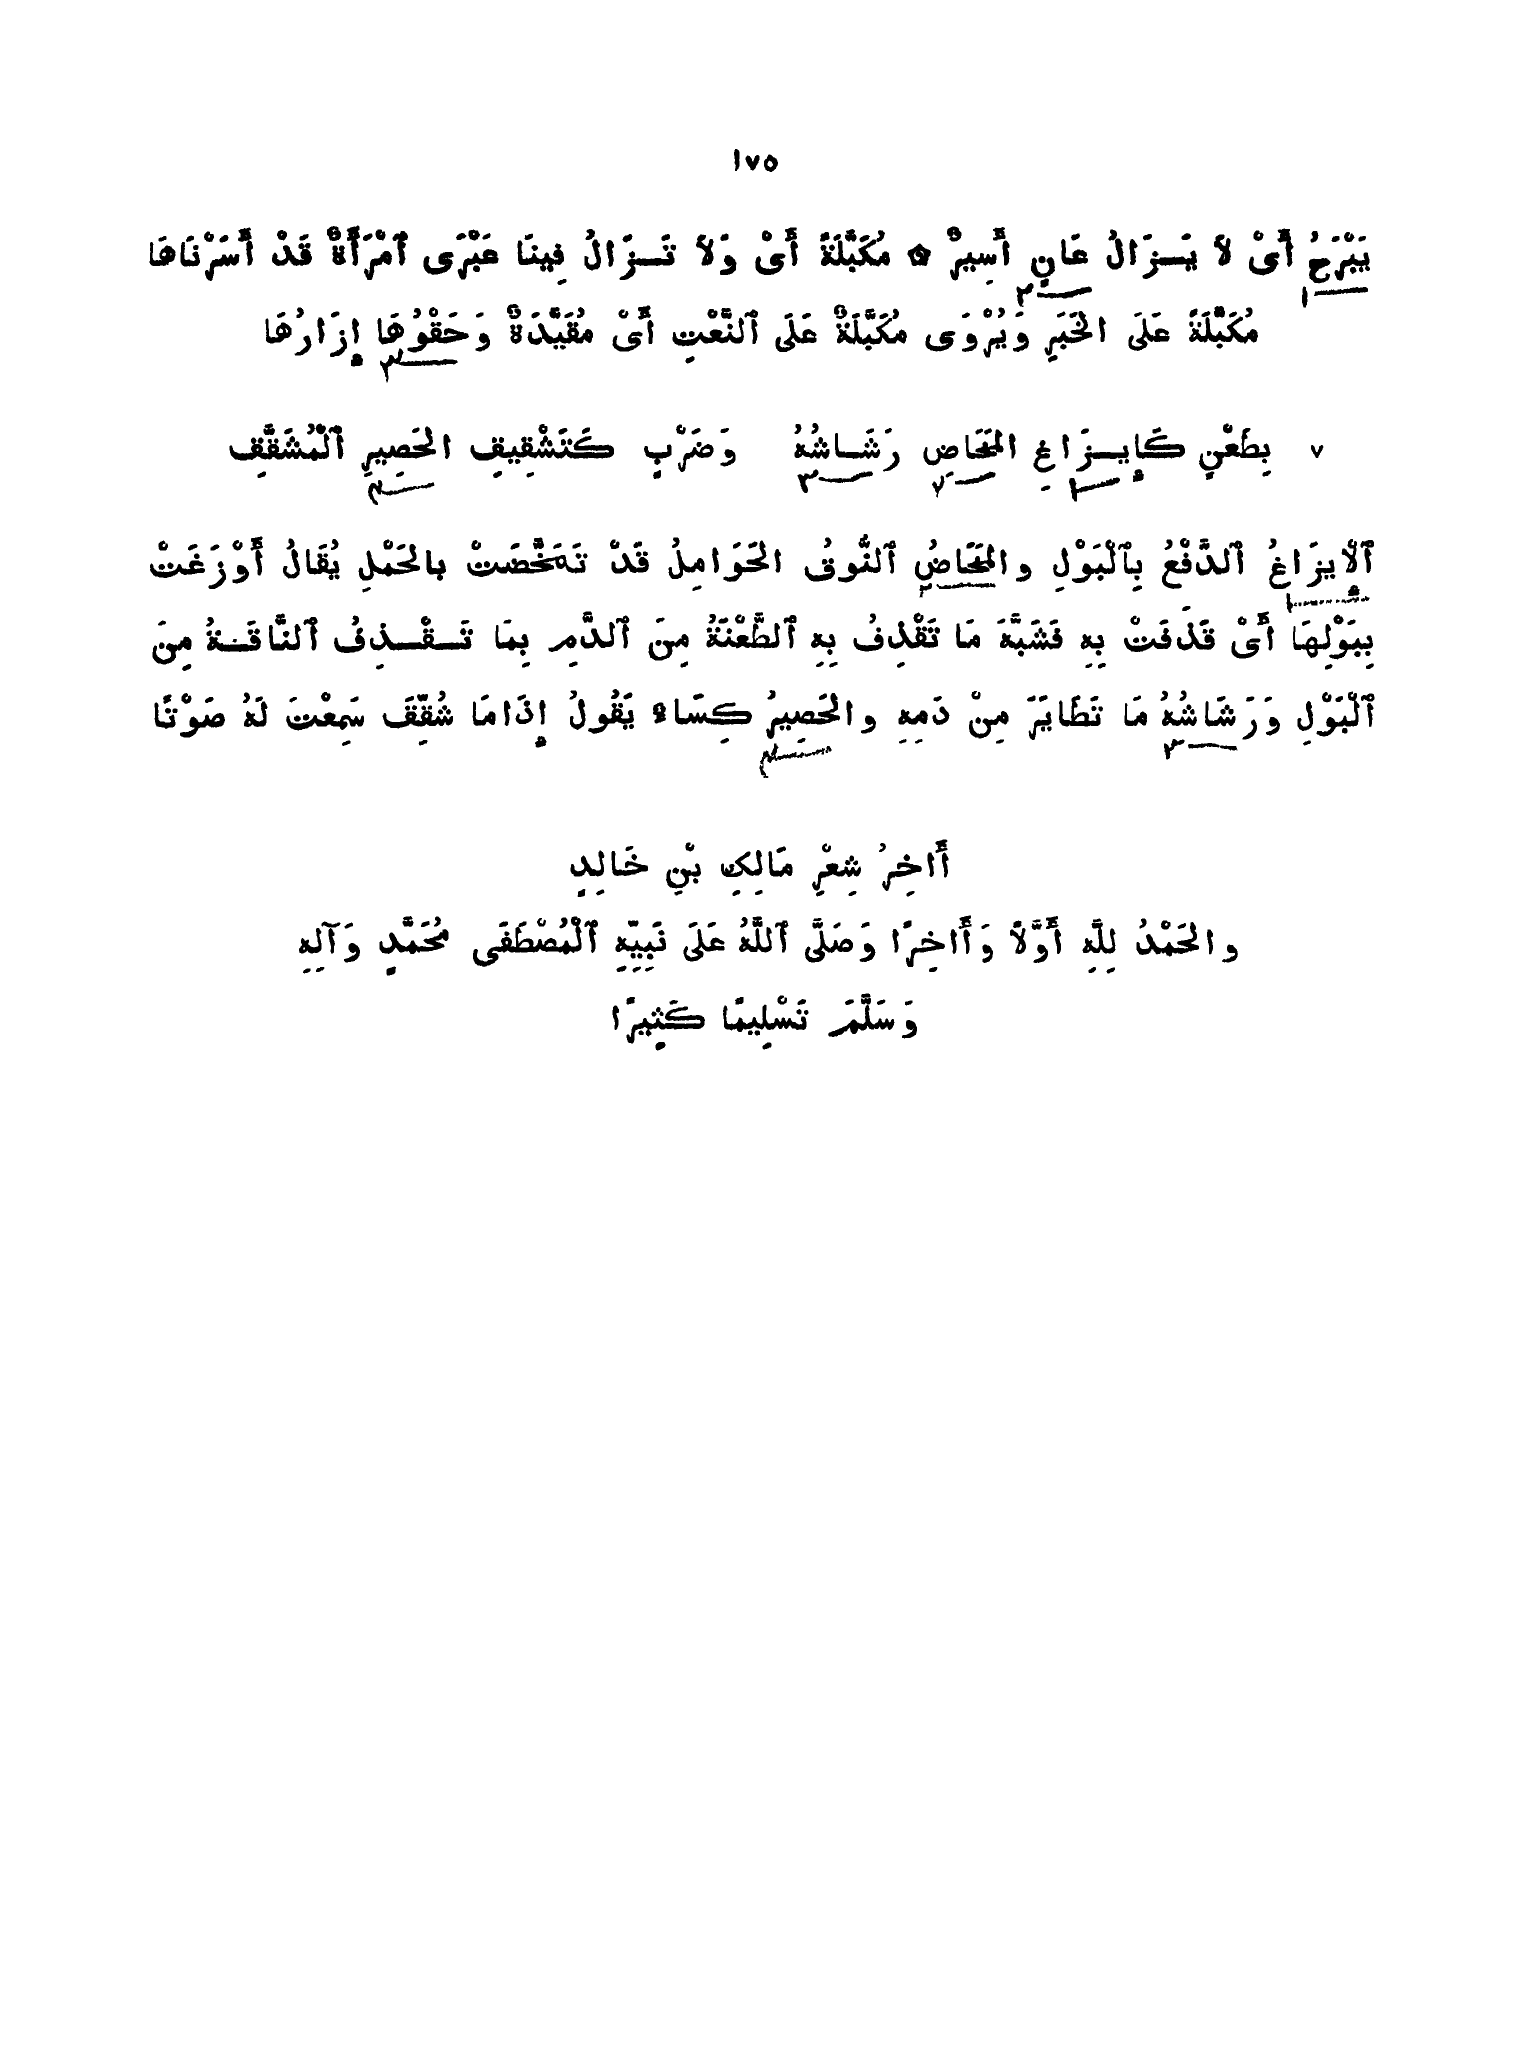 ١٧٥
يَبْرَحُ أَىْ لَا يَـزَالُ عَانٍ أَسِيرٌ ۞ مُكَبَّلَةً أَىْ وَلَا تَـزَالُ فِينَا عَبْرَى ٱمْرَأَةٌ قَدْ أَسَرْنَاهَا
مُكَبَّلَةً عَلَى الخَبَرِ وَيُرْوَى مُكَبَّلَةٌ عَلَى ٱلنَّعْتِ أَىْ مُقَيَّدَةٌ وَحَقْوُهَا إِزَارُهَا
٧ بِطَعْنٍ كَإِيـزَاغِ المَخَاضِ رَشَـاشُهُ وَضَرْبٍ كَتَشْقِيقِ الحَصِيرِ ٱلْمُشَقَّقِ
ٱلْإِيزَاغُ ٱلدَّفْعُ بِٱلْبَوْلِ والمَخَاضُ ٱلنُّوقُ الحَوَامِلُ قَدْ تَمَخَّضَتْ بالحَمْلِ يُقَالُ أَوْزَغَتْ
بِبَوْلِهَا أَىْ قَذَفَتْ بِهِ فَشَبَّهَ مَا تَقْذِفُ بِهِ ٱلطَّعْنَةُ مِنَ ٱلدَّمِ بِمَا تَـقْـذِفُ ٱلنَّاقَـةُ مِنَ
ٱلْبَوْلِ وَرَشَاشُهُ مَا تَطَايَرَ مِنْ دَمِهِ والحَصِيرُ كِسَاءٌ يَقُولُ إِذَا مَا شُقِّقَ سَمِعْتَ لَهُ صَوْتًا
أَاخِرُ شِعْرِ مَالِكِ بْنِ خَالِدٍ
والحَمْدُ لِلَّهِ أَوَّلًا وَأَاخِرًا وَصَلَّى ٱللَّهُ عَلَى نَبِيِّهِ ٱلْمُصْطَفَى مُحَمَّدٍ وَآلِهِ
وَسَلَّمَ تَسْلِيمًا كَثِيرًا